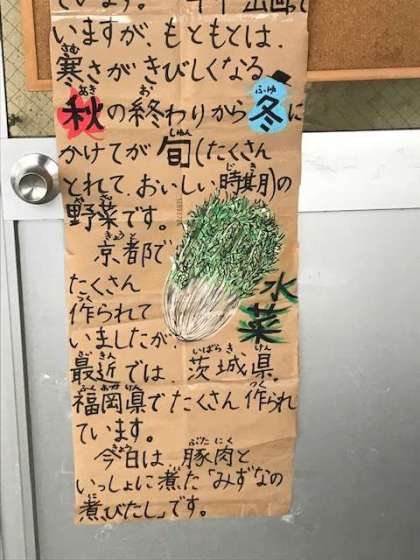 います。
いますが、もともとは、
寒さがきびしくなる
秋の終わりから冬に
かけてが旬(たくさん
とれて、おいしい時期)の
野菜です。
京都で
たくさん
作られて
いましたが
最近では、茨城県、
福岡県でたくさん作られ
ています。
今日は、豚肉と
いっしょに煮た「みずなの
煮びたし」です。
水菜